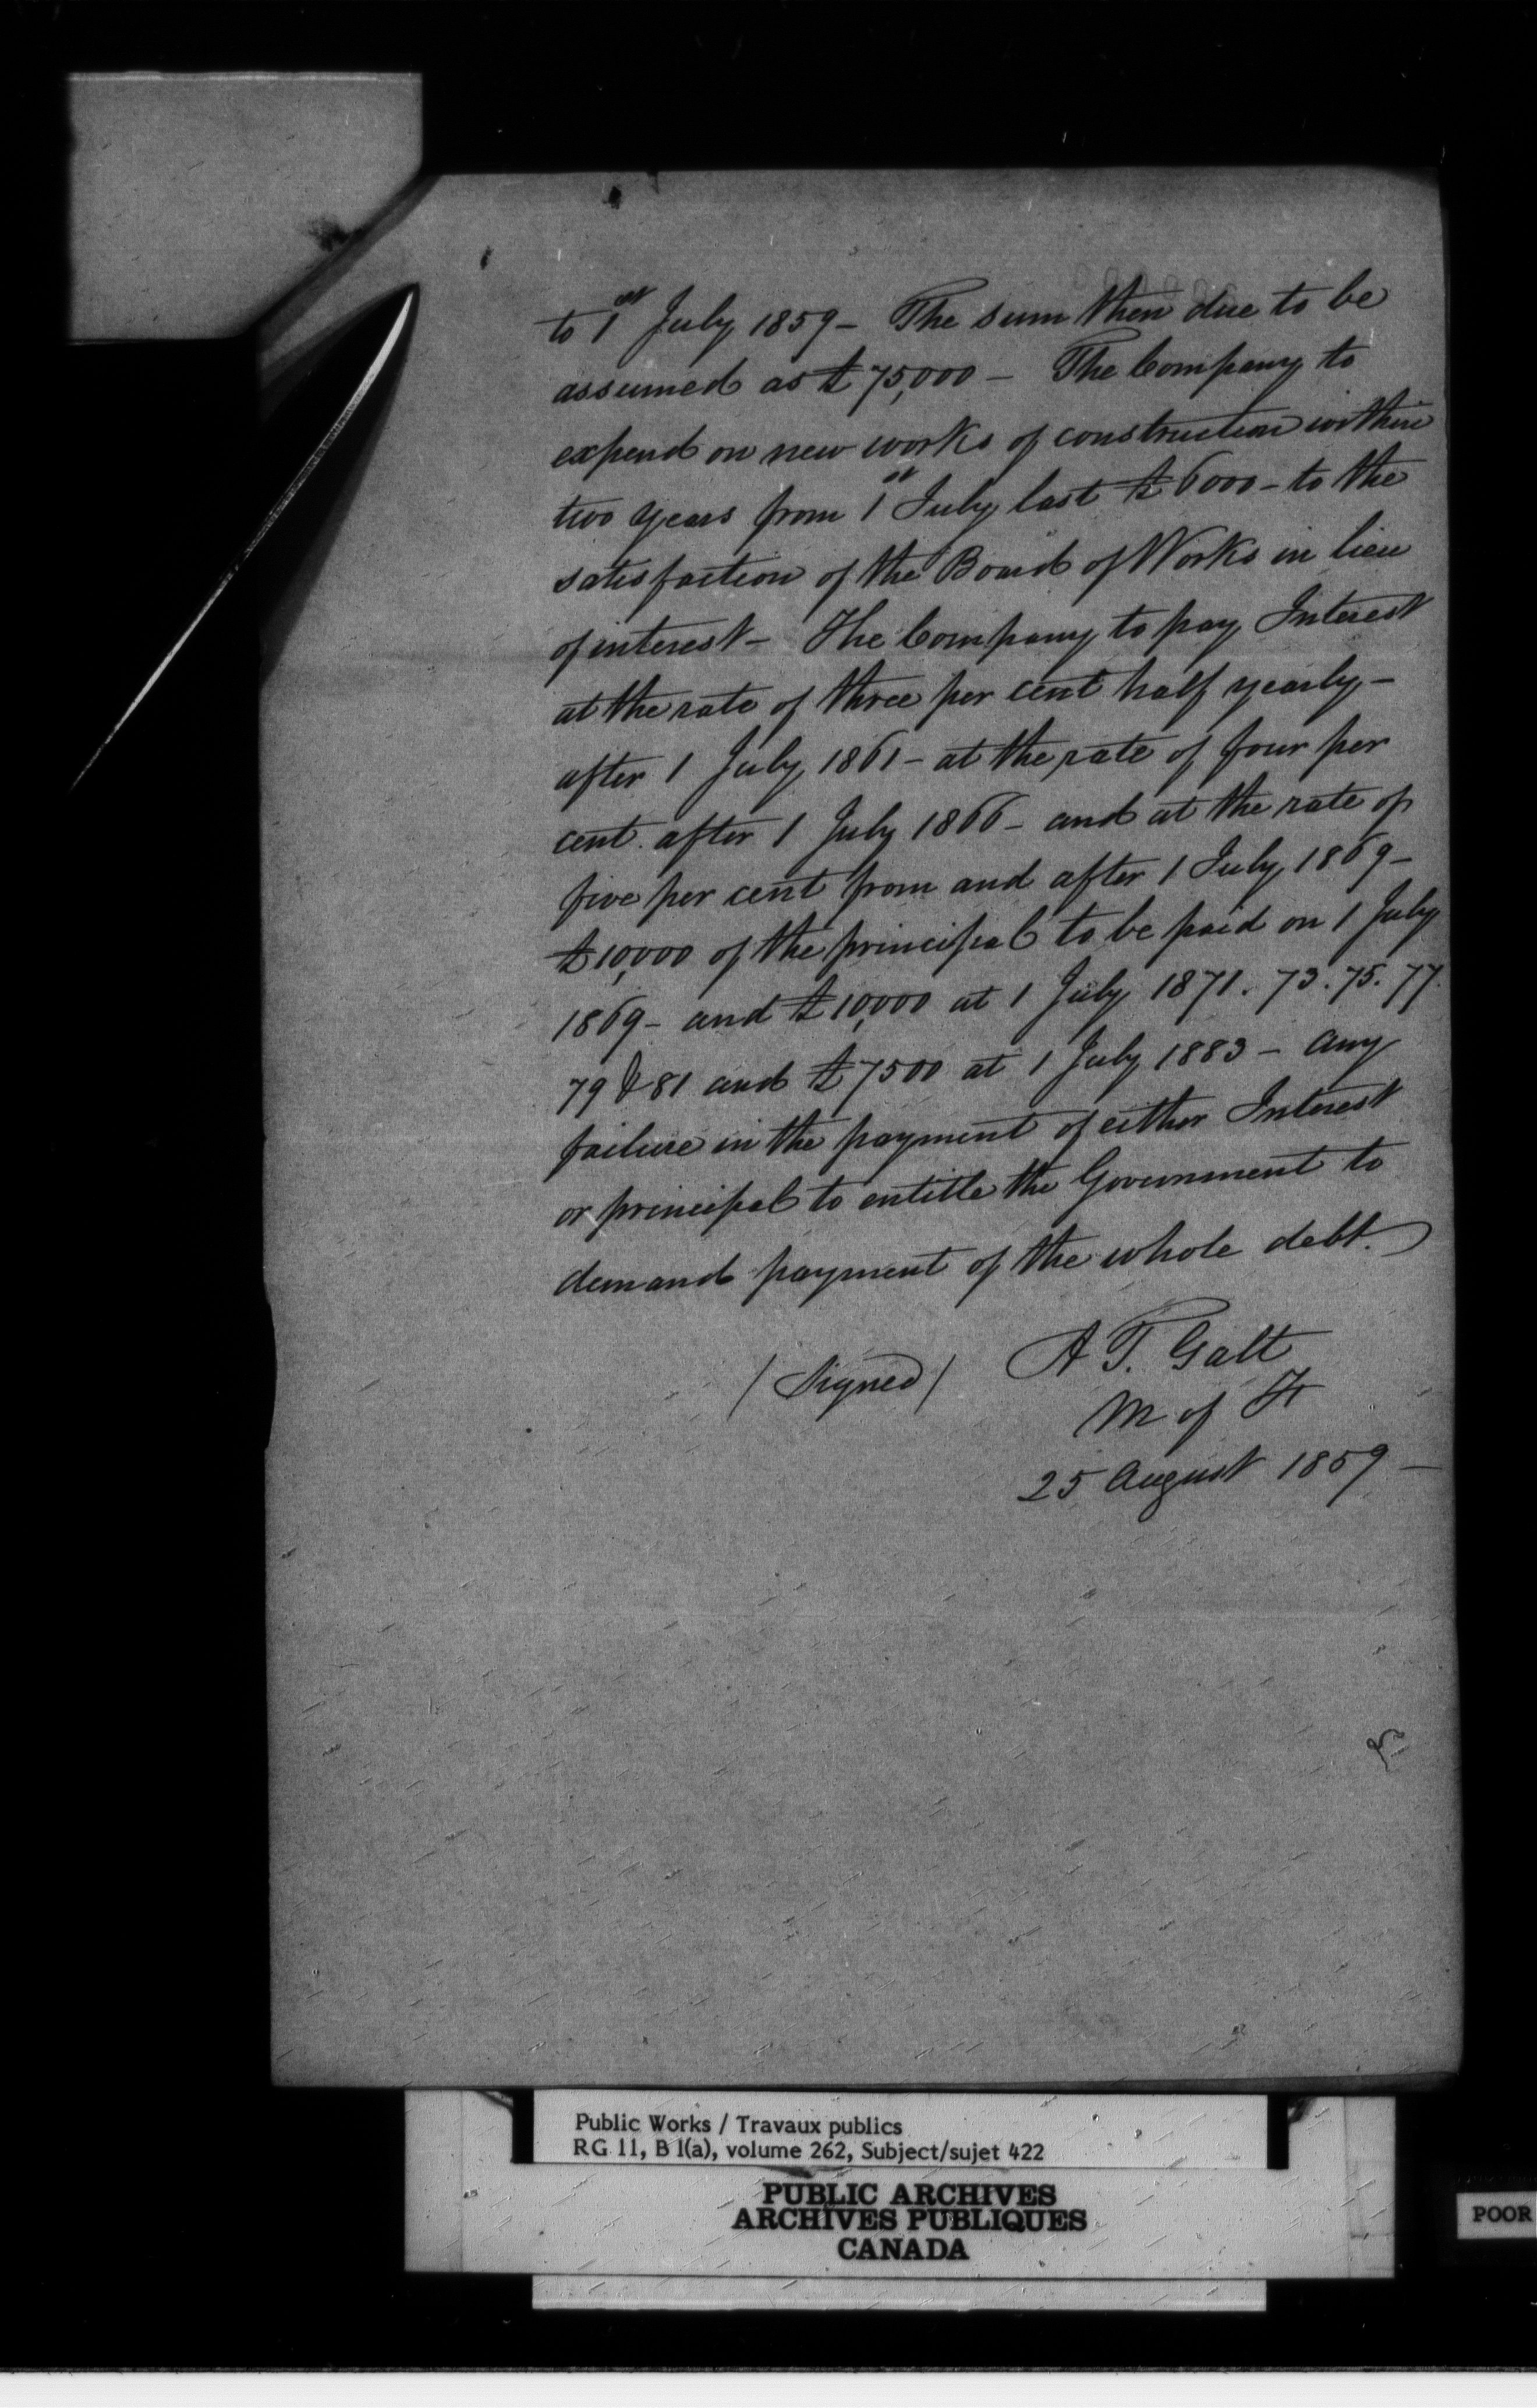 to 1st July 1859 - The sum then due to be
assumed as £75,000 - The Company to
expend on new works of construction within
two years from 1st July last £6000 - to the
satisfaction of the Board of Works in lieu
of interest - The Company to pay Interest
at the rate of three per cent half yearly -
after 1 July 1861 - at the rate of four per
cent. after 1 July 1866 - and at the rate of
five per cent from and after 1 July 1869 -
£10,000 of the principal to be paid on 1 July
1869 - and £10,000 at 1 July 1871. 73. 75. 77.
79 & 81 and £7500 at 1 July 1883 - any
failure in the payment of either Interest
or principal to entitle the Government to
demand payment of the whole debt.
(Signed) A T. Galt
M of F
25 August 1859 -
Public Works / Travaux publics
RG 11, B 1(a), volume 262, Subject/sujet 422
PUBLIC ARCHIVES
ARCHIVES PUBLIQUES
CANADA
POOR